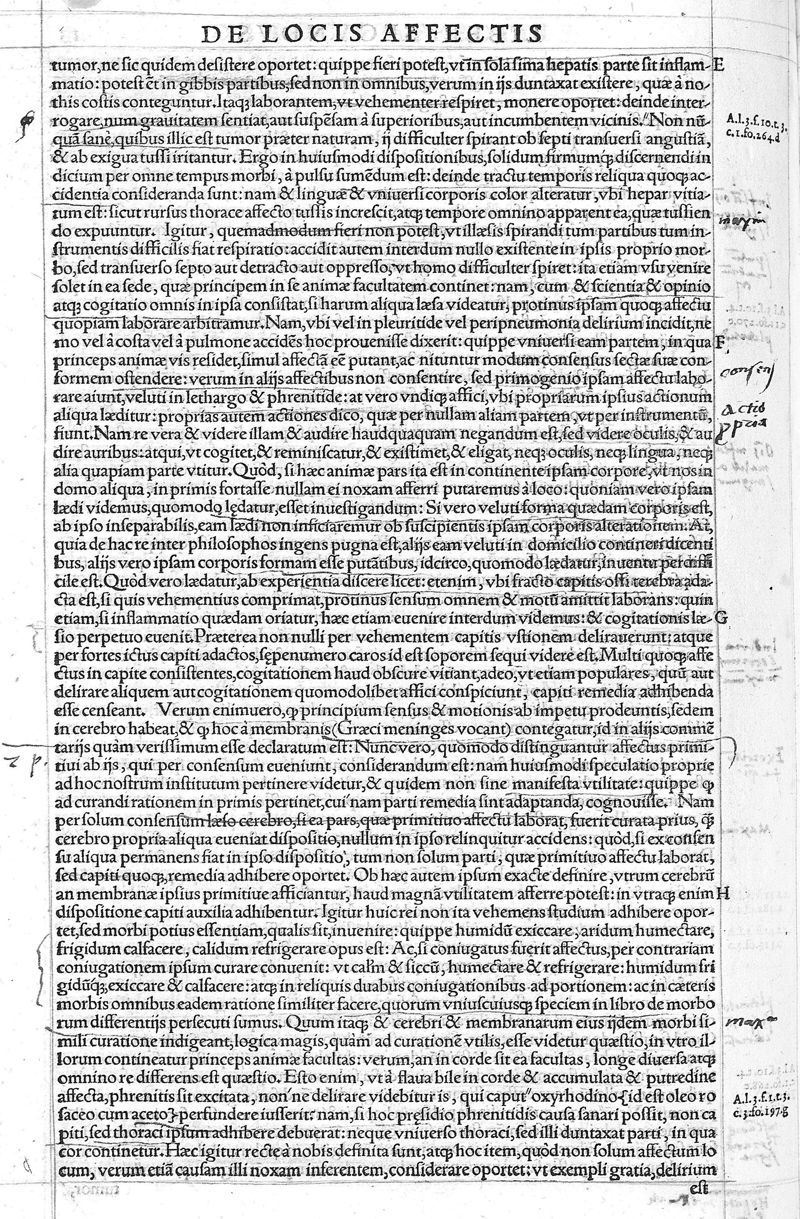 DE LOCIS AFFECTIS
tumor, ne sic quidem desistere oportet: quippe fieri potest, vt in sola sima hepatis parte sit inflam- E
matio: potest et̄ in gibbis partibus, sed non in omnibus, verum in ijs duntaxat existere, quæ à no-
this costis conteguntur. Itaq; laborantem, vt vehementer respiret, monere oportet: deinde inter-
rogare, num grauitatem sentiat, aut suspēsam à superioribus, aut incumbentem vicinis. "Non nū-
quā sanè, quibus illic est tumor præter naturam, ij difficulter spirant ob septi transuersi angustiā,
A.l.3.f.10.t.3.
c.1.fo.264.d
& ab exigua tussi irritantur. Ergo in huiusmodi dispositionibus, solidum firmumq; discernendi in
dicium per omne tempus morbi, à pulsu sumēdum est: deinde tractu temporis reliqua quoq; ac-
cidentia consideranda sunt: nam & linguæ & vniuersi corporis color alteratur, vbi hepar vitia-
tum est: sicut rursus thorace affecto tussis increscit, atq; tempore omnino apparent ea, quæ tussien
do expuuntur. Igitur, quemadmodum fieri non potest, vt illæsis spirandi tum partibus tum in-
strumentis difficilis fiat respiratio: accidit autem interdum nullo existente in ipsis proprio mor-
bo, sed transuerso septo aut detracto aut oppresso, vt homo difficulter spiret: ita etiam vsu venire
solet in ea sede, quæ principem in se animæ facultatem continet: nam, cum & scientia & opinio
atq; cogitatio omnis in ipsa consistat, si harum aliqua læsa videatur, protinus ipsam quoq; affectu
quopiam laborare arbitramur. Nam, vbi vel in pleuritide vel peripneumonia delirium incidit, ne
mo vel à costa vel à pulmone accidēs hoc prouenisse dixerit: quippe vniuersi eam partem, in qua F
princeps animæ vis residet, simul affectā eē putant, ac nituntur modum consensus sectæ suæ con-
formem ostendere: verum in alijs affectibus non consentire, sed primogenio ipsam affectu labo-
consens
rare aiunt, veluti in lethargo & phrenitide: at vero vndiq; affici, vbi propriarum ipsius actionum
aliqua læditur: proprias autem actiones dico, quæ per nullam aliam partem, vt per instrumentū,
fiunt. Nam re vera & videre illam & audire haudquaquam negandum est, sed videre oculis, & au
dire auribus: atqui, vt cogitet, & reminiscatur, & existimet, & eligat, neq; oculis, neq; lingua, neq;
alia quapiam parte vtitur. Quòd, si hæc animæ pars ita est in continente ipsam corpore, vt nos in
domo aliqua, in primis fortasse nullam ei noxam afferri putaremus à loco: quoniam vero ipsam
lædi videmus, quomodo lędatur, esset inuestigandum: Si vero veluti forma quædam corporis est,
ab ipso inseparabilis, eam lædi non inficiaremur ob suscipientis ipsam corporis alterationem. At,
quia de hac re inter philosophos ingens pugna est, alijs eam veluti in domicilio contineri dicenti
bus, alijs vero ipsam corporis formam esse putātibus, idcirco, quomodo lædatur, inuentu per diffi
cile est. Quòd vero lædatur, ab experientia discere licet: etenim, vbi fracto capitis ossi terebra ada-
cta est, si quis vehementius comprimat, protinus sensum omnem & motū amittit laborans: quin
etiam, si inflammatio quædam oriatur, hæc etiam euenire interdum videmus: & cogitationis læ- G
sio perpetuo euenit. Præterea non nulli per vehementem capitis vstionem delirauerunt: atque
per fortes ictus capiti adactos, sępenumero caros id est soporem sequi videre est. Multi quoq; affe
ctus in capite consistentes, cogitationem haud obscure vitiant, adeo, vt etiam populares, quū aut
delirare aliquem aut cogitationem quomodolibet affici conspiciunt, capiti remedia adhibenda
esse censeant. Verum enimuero, ꝙ principium sensus & motionis ab impetu prodeuntis, sedem
in cerebro habeat, & ꝙ hoc à membranis (Græci meninges vocant) contegatur, id in alijs commē
tarijs quàm verissimum esse declaratum est: Nunc vero, quomodo distinguantur affectus primi-
tiui ab ijs, qui per consensum eueniunt, considerandum est: nam huiusmodi speculatio proprie
ad hoc nostrum institutum pertinere videtur, & quidem non sine manifesta vtilitate: quippe ꝙ
ad curandi rationem in primis pertinet, cui nam parti remedia sint adaptanda, cognouisse. Nam
per solum consensum læso cerebro, si ea pars, quæ primitiuo affectu laborat, fuerit curata prius, ꝗ̃
cerebro propria aliqua eueniat dispositio, nullum in ipso relinquitur accidens: quòd, si ex consen
su aliqua permanens fiat in ipso dispositio, tum non solum parti, quæ primitiuo affectu laborat,
sed capiti quoq; remedia adhibere oportet. Ob hæc autem ipsum exacte definire, vtrum cerebrū
an membranæ ipsius primitiue afficiantur, haud magnā vtilitatem afferre potest: in vtraq; enim H
dispositione capiti auxilia adhibentur. Igitur huic rei non ita vehemens studium adhibere opor-
tet, sed morbi potius essentiam, qualis sit, inuenire: quippe humidū exiccare, aridum humectare,
frigidum calfacere, calidum refrigerare opus est: Ac, si coniugatus fuerit affectus, per contrariam
coniugationem ipsum curare conuenit: vt calm̄ & siccū, humectare & refrigerare: humidum fri
gidūq;, exiccare & calfacere: atq; in reliquis duabus coniugationibus ad portionem: ac in cæteris
morbis omnibus eadem ratione similiter facere, quorum vniuscuiusq; speciem in libro de morbo
rum differentijs persecuti sumus. Quum itaq; & cerebri & membranarum eius ijdem morbi si-
mili curatione indigeant, logica magis, quàm ad curationē vtilis, esse videtur quæstio, in vtro il-
lorum contineatur princeps animæ facultas: verum, an in corde sit ea facultas, longe diuersa atq;
omnino re differens est quæstio. Esto enim, vt à flaua bile in corde & accumulata & putredine
affecta, phrenitis sit excitata, non ne delirare videbitur is, qui caput "oxyrhodino {id est oleo ro
saceo cum aceto} perfundere iusserit: nam, si hoc pręsidio phrenitidis causa sanari possit, non ca
A.l.3.f.1.t.3.
c.3.fo.197.g
piti, sed thoraci ipsum adhibere debuerat: neque vniuerso thoraci, sed illi duntaxat parti, in qua
cor continetur. Hæc igitur recte à nobis definita sunt, atq; hoc item, quòd non solum affectum lo
cum, verum etiā causam illi noxam inferentem, considerare oportet: vt exempli gratia, delirium
est